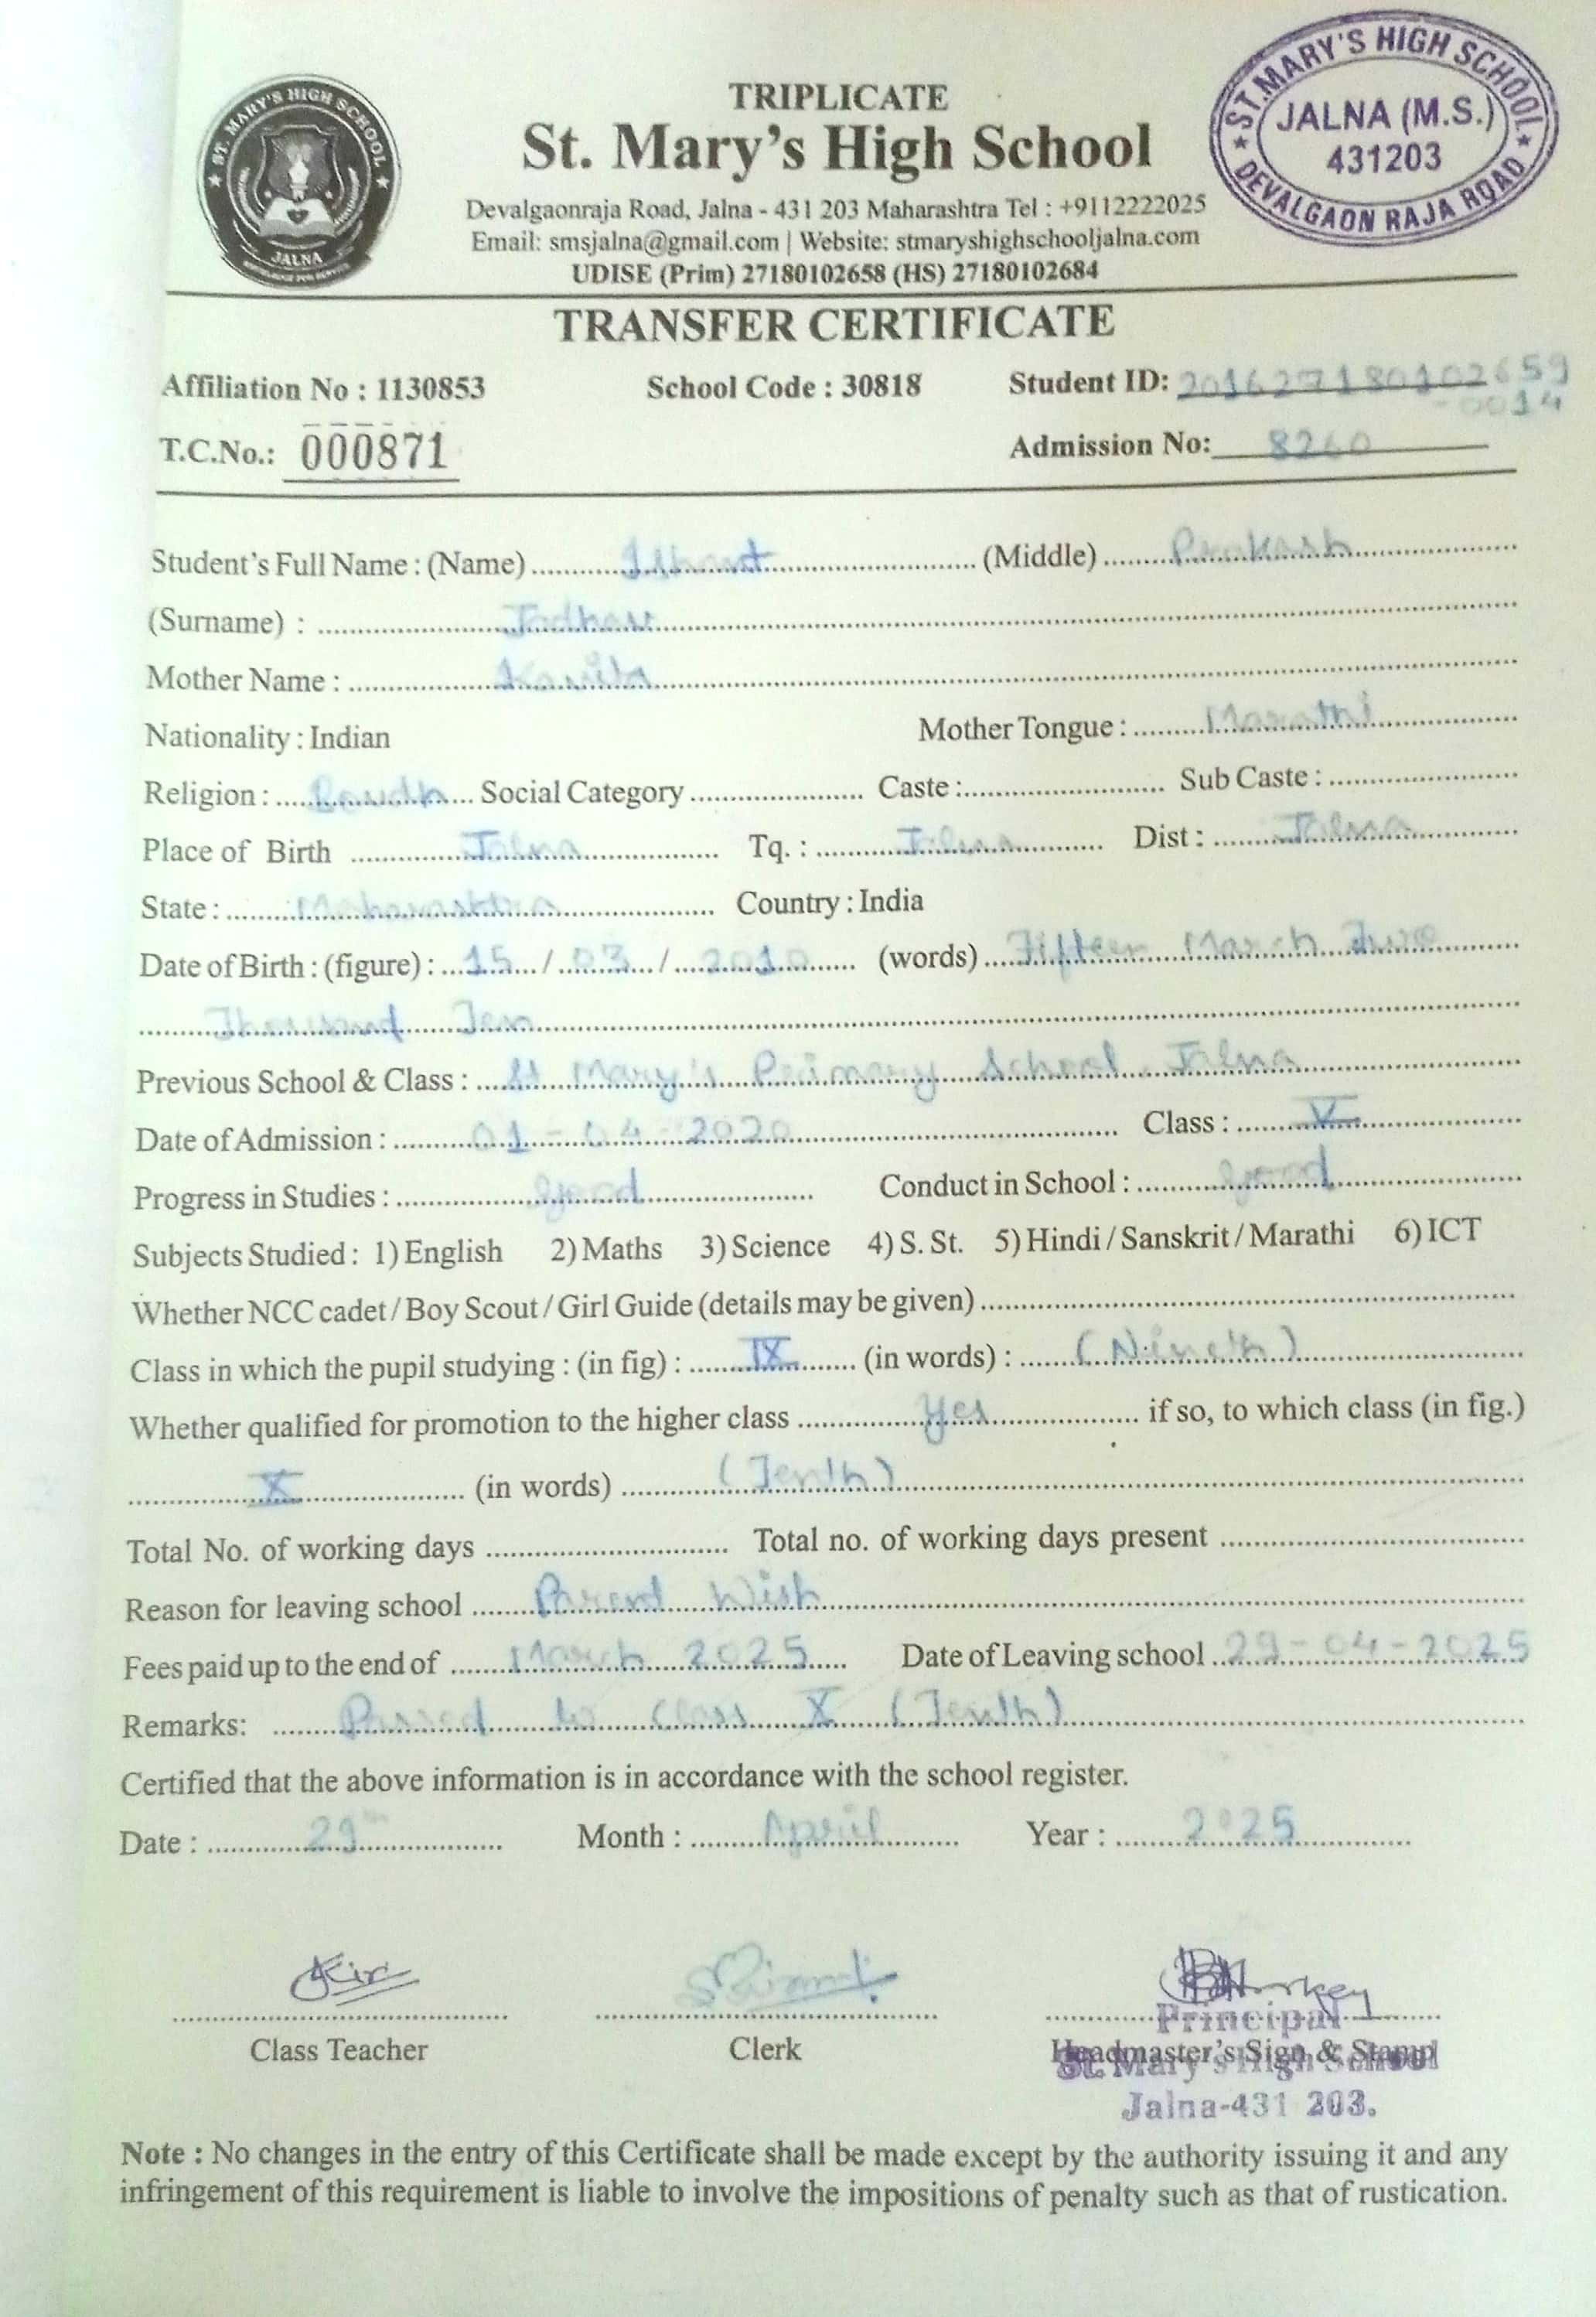 ST. MARY'S HIGH SCHOOL
JALNA
TRIPLICATE
St. Mary's High School
Devalgaonraja Road, Jalna - 431 203 Maharashtra Tel : +9112222025
Email: smsjalna@gmail.com | Website: stmaryshighschooljalna.com
UDISE (Prim) 27180102658 (HS) 27180102684
ST.MARY'S HIGH SCHOOL
JALNA (M.S.)
431203
DEVALGAON RAJA ROAD
TRANSFER CERTIFICATE
Affiliation No : 1130853 School Code : 30818 Student ID: 201627180102659
-0014
T.C.No.: 000871 Admission No: 8260
Student's Full Name : (Name) (Middle) Prakash
(Surname) : Jadhav
Mother Name : Kavita
Nationality : Indian Mother Tongue : Marathi
Religion : Boudh Social Category Caste : Sub Caste :
Place of Birth Jalna Tq. : Jalna Dist : Jalna
State : Maharashtra Country : India
Date of Birth : (figure) : 15 / 03 / 2010 (words) Fifteen March Two
Thousand Ten
Previous School & Class : St Mary's Primary School Jalna
Date of Admission : 01-04-2020 Class : V
Progress in Studies : good Conduct in School : good
Subjects Studied : 1) English 2) Maths 3) Science 4) S. St. 5) Hindi / Sanskrit / Marathi 6) ICT
Whether NCC cadet / Boy Scout / Girl Guide (details may be given)
Class in which the pupil studying : (in fig) : IX (in words) : (Nineth)
Whether qualified for promotion to the higher class Yes if so, to which class (in fig.)
X (in words) (Tenth)
Total No. of working days Total no. of working days present
Reason for leaving school Parent Wish
Fees paid up to the end of March 2025 Date of Leaving school 29-04-2025
Remarks: Passed to Class X (Tenth)
Certified that the above information is in accordance with the school register.
Date : 29th Month : April Year : 2025
Class Teacher Clerk Headmaster's Sign & Stamp
Principal
St. Mary's High School
Jalna-431 203.
Note : No changes in the entry of this Certificate shall be made except by the authority issuing it and any
infringement of this requirement is liable to involve the impositions of penalty such as that of rustication.